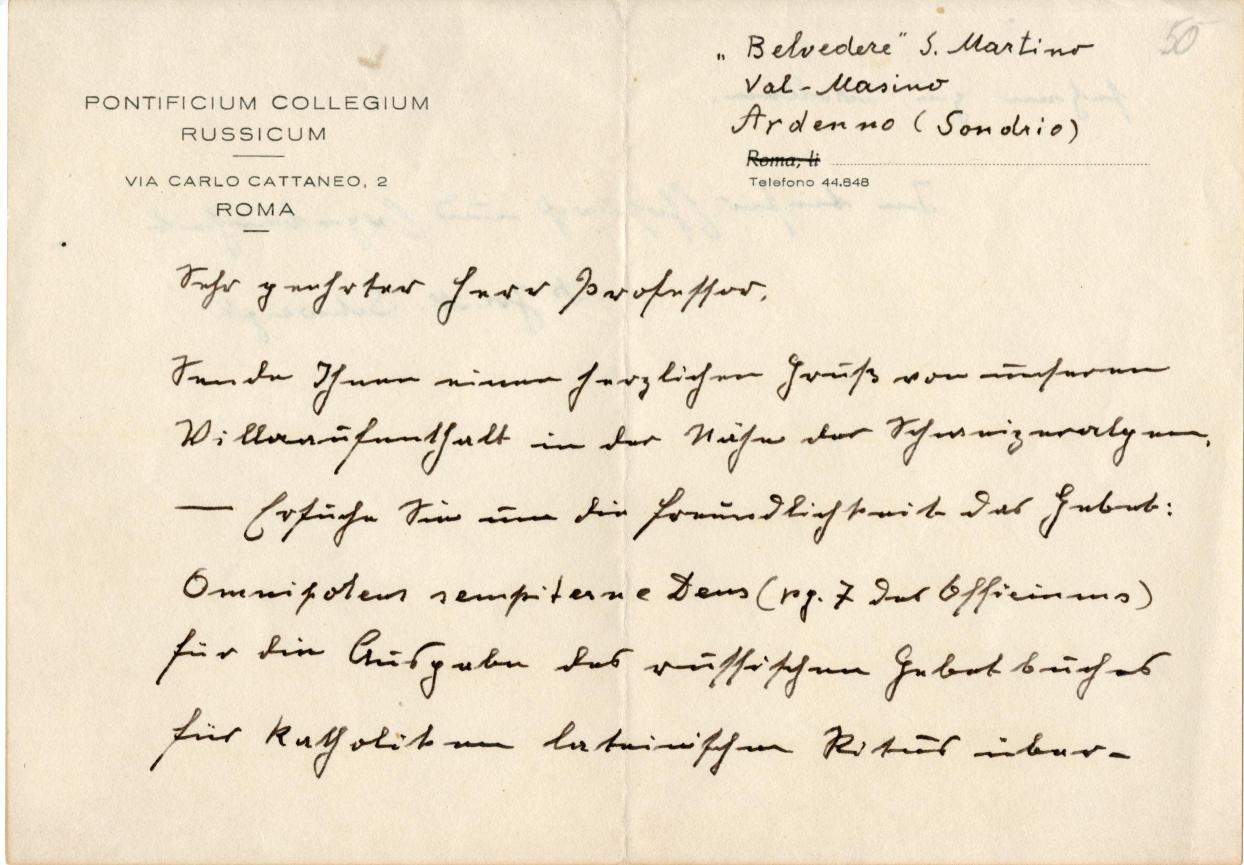 50
„Belvedere" S. Martino
Val-Masino
Ardenno (Sondrio)
PONTIFICIUM COLLEGIUM
RUSSICUM
VIA CARLO CATTANEO, 2
ROMA
Roma, li
Telefono 44.848
Sehr geehrter Herr Professor,
Sende Ihnen einen herzlichen Gruß von unserem
Villaaufenthalt in der Nähe der Schweizeralpen.
— Ersuche Sie um die Freundlichkeit das Gebet:
Omnipotens sempiterne Deus (pg. 7 des Officiums)
für die Ausgabe des russischen Gebetbuches
für Katholiken lateinischen Ritus über-